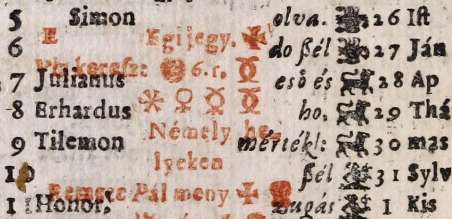 5 Simon olva. 26 Ist
6 E Egijegy. ✠ do ßél 27 Ján
Vízkereszt 6.r.
7 Julianus eső és 28 Ap
8 Erhardus ho, 29 Thá
Némely he-
9 Tilemon mértékl: 30 mas
lyeken
10 ßél 31 Sylv
Remete Pál meny ✠
11 Honor, zugás 1 Kis